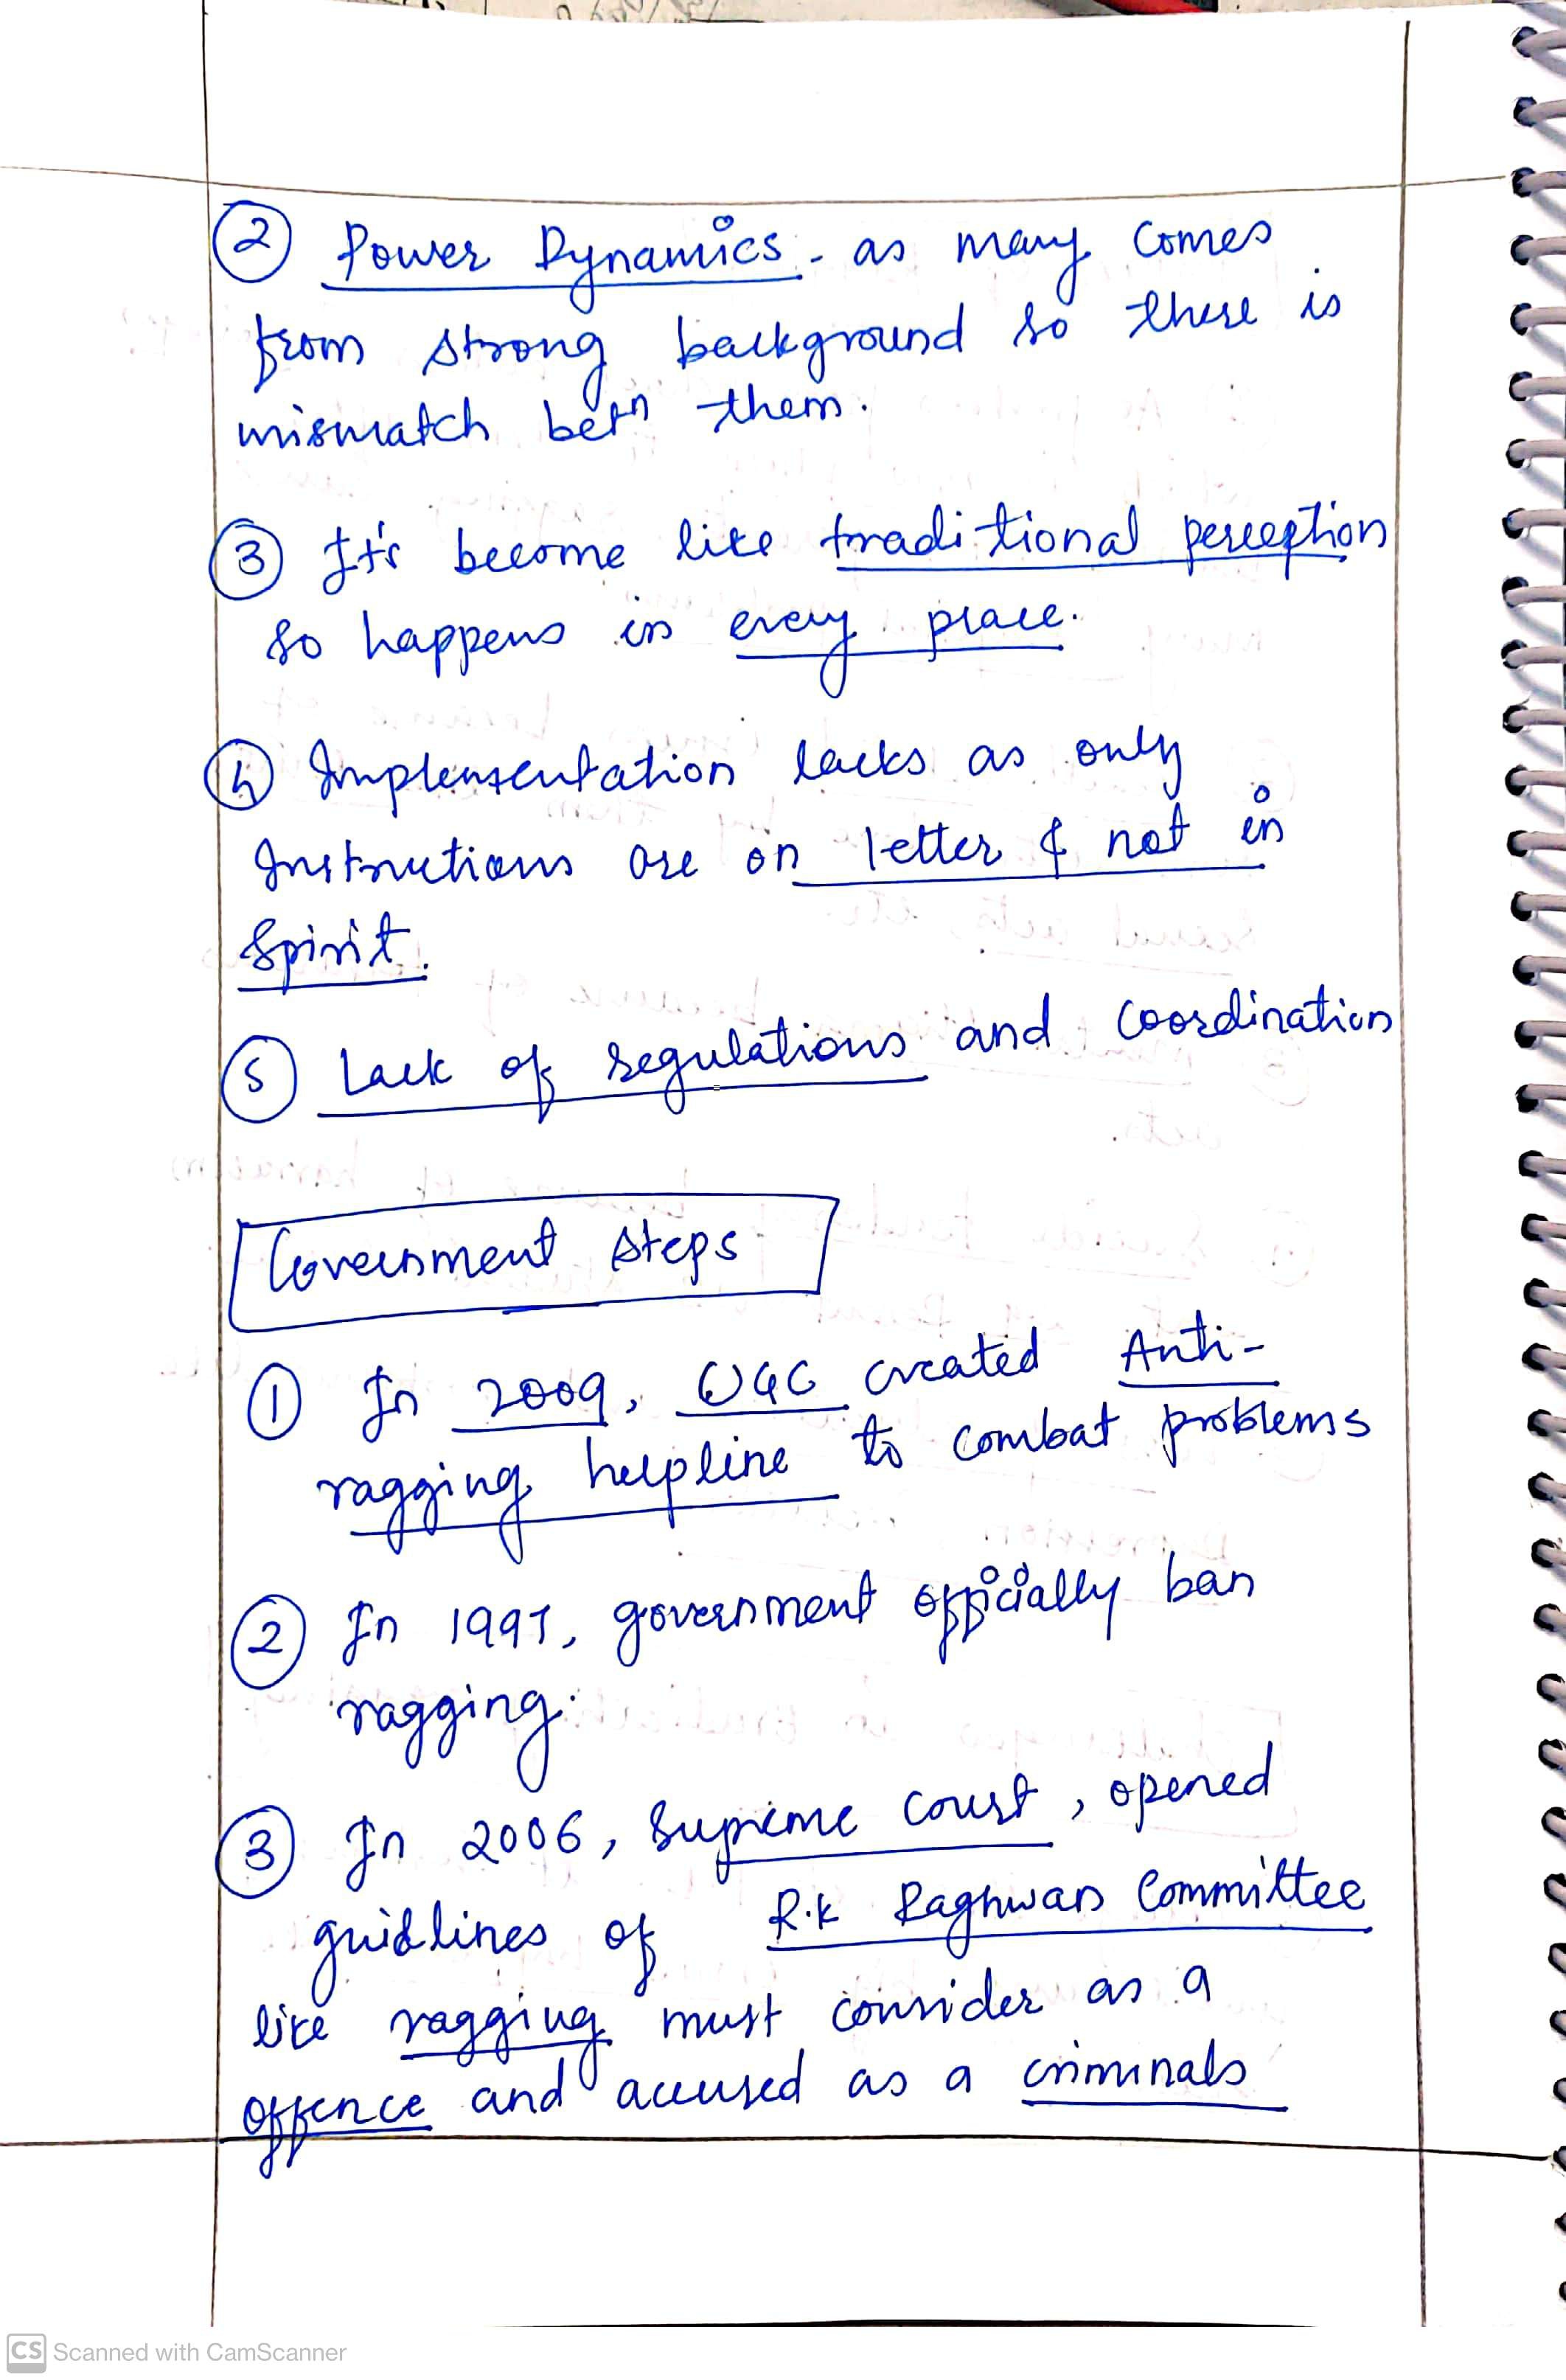 ② Power Dynamics - as many comes
from strong background so there is
mismatch betn them.
③ It's become like traditional perception
so happens in every place.
④ Implementation lacks as only
Instructions are on letter & not in
Spirit.
⑤ Lack of regulations and coordination
Government steps
① In 2009, UGC created Anti-
ragging helpline to combat problems
② In 1997, government officially ban
ragging.
③ In 2006, Supreme court, opened
guidlines of R.K Raghwan Committee
like ragging must consider as a
offence and accused as a criminals
CS Scanned with CamScanner